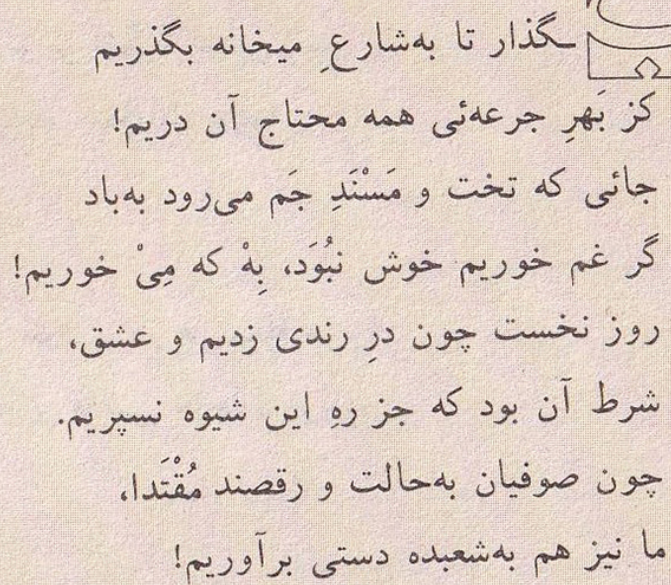 بگذار تا به‌شارعِ میخانه بگذریم
کز بَهرِ جرعه‌ئی همه محتاج آن دریم!
جائی که تخت و مَسْنَدِ جَم می‌رود به‌باد
گر غم خوریم خوش نبُوَد، بِهْ که مِیْ خوریم!
روز نخست چون درِ رندی زدیم و عشق،
شرط آن بود که جز رهِ این شیوه نسپریم.
چون صوفیان به‌حالت و رقصند مُقْتَدا،
ما نیز هم به‌شعبده دستی برآوریم!